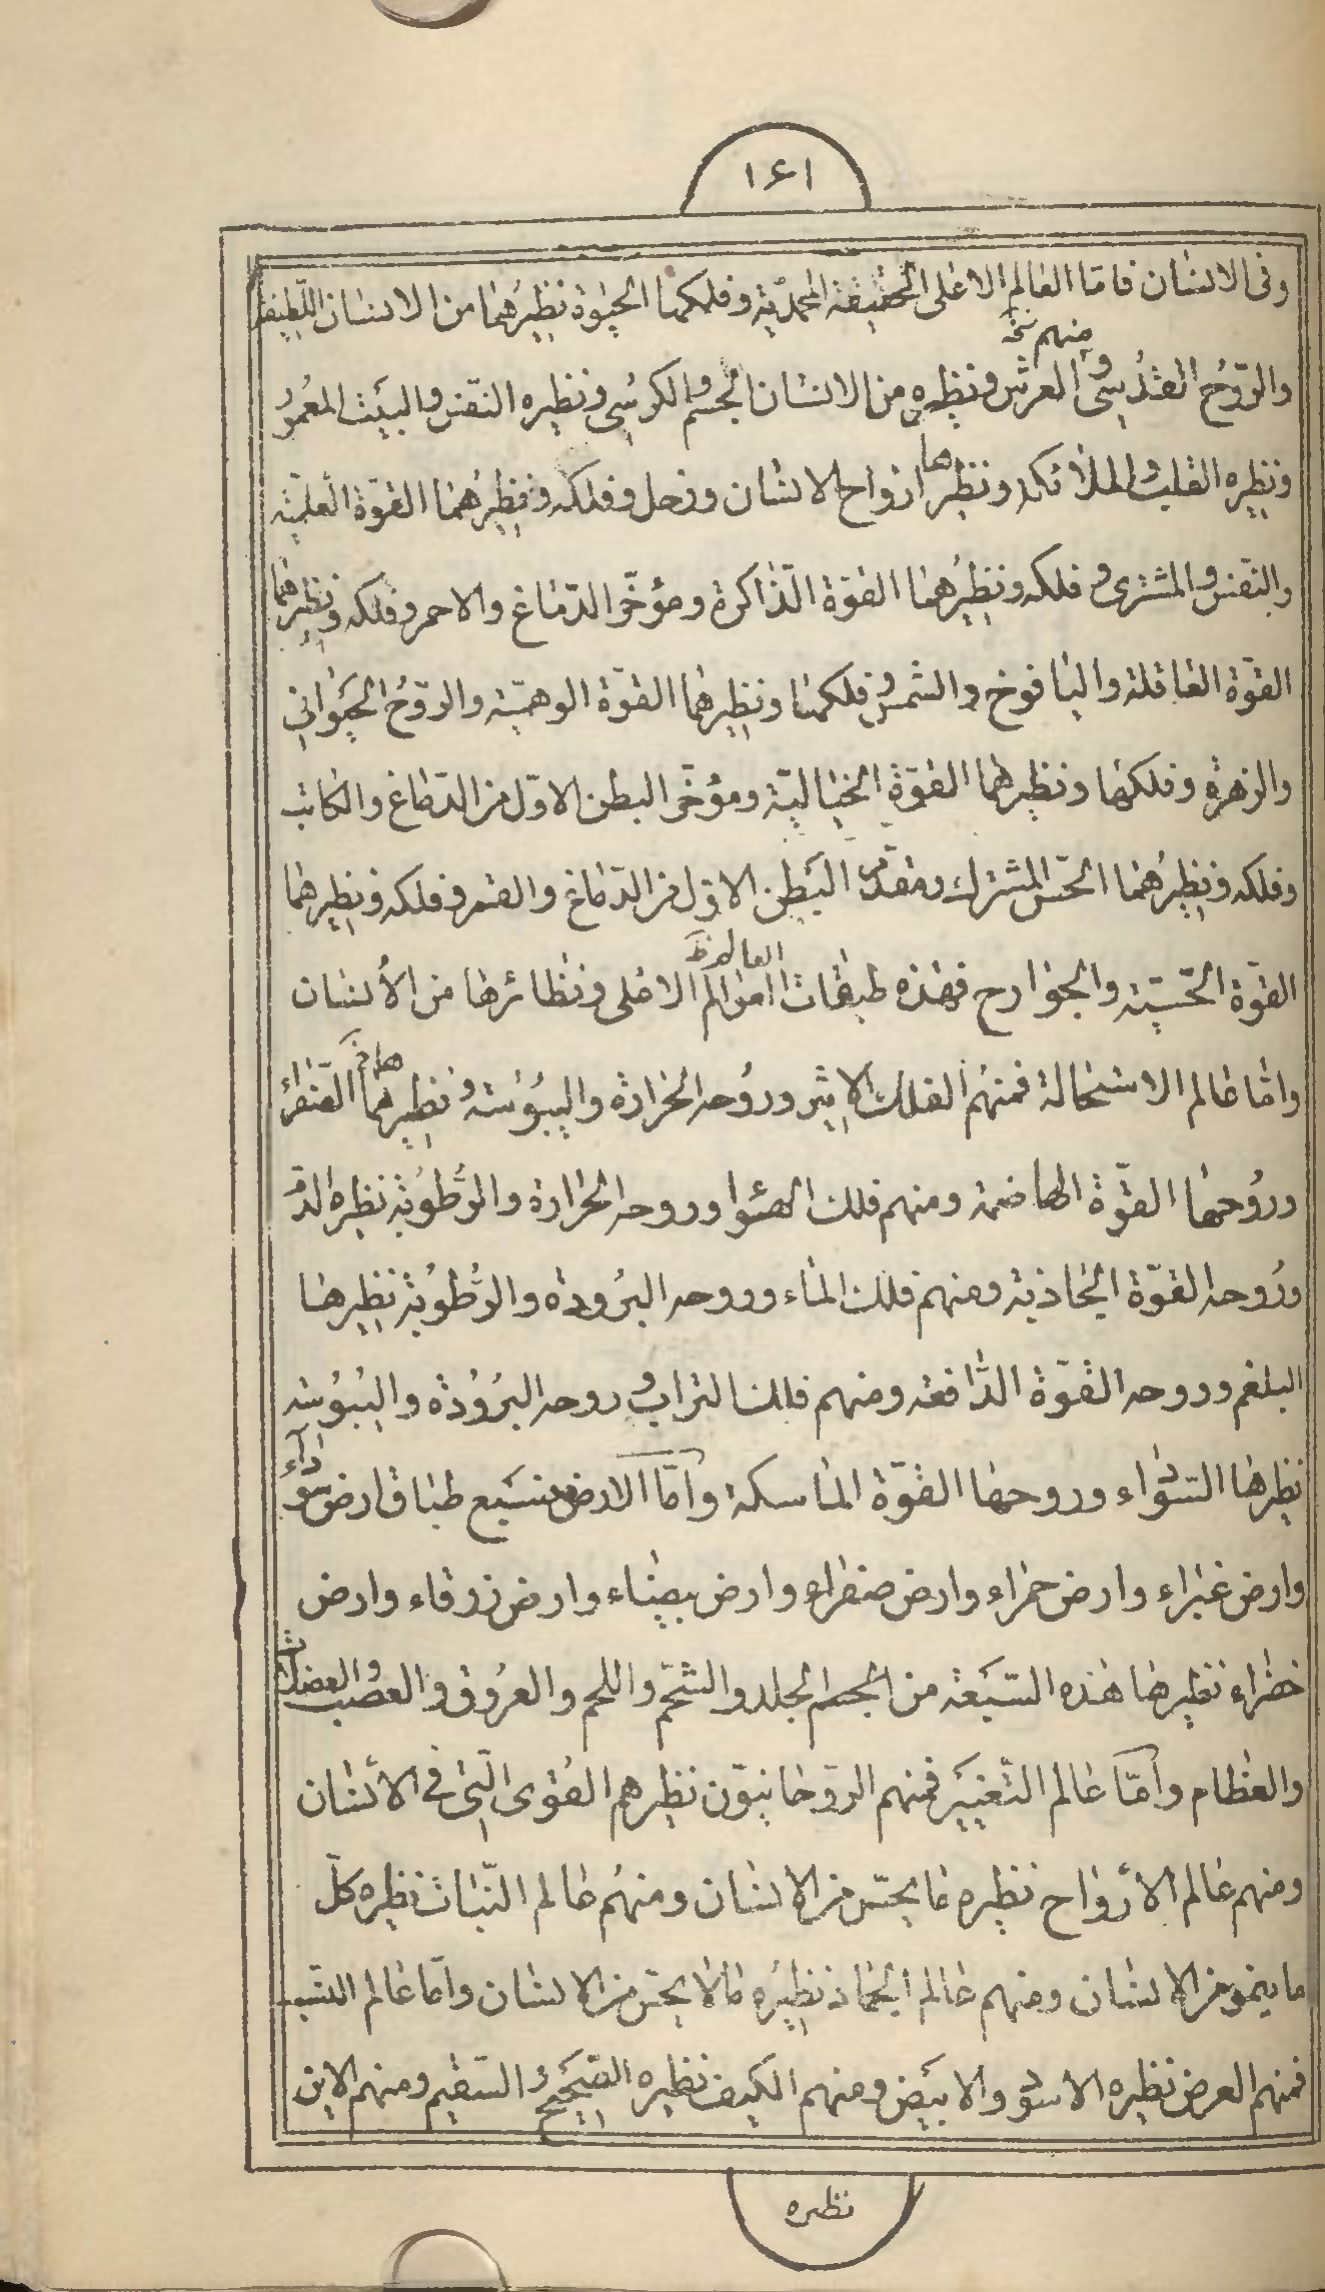 ۱۶۱
وفى الانسان فامّا العالم الاعلى الحقيقة المحمديّة وفلكهما الحيوة نظيرهما من الانسان اللّطيفة
منهم نخه
والرّوح القدسى و العرش ونظيره من الانسان الجسم والكرسى ونظيره النّفس والبيت المعمور
ونظيره القلب والملائكه ونظيرها ارواح الانسان وزحل وفلكه ونظيرهما القوّة العلميّة
والنّفس والمشترى و فلكه ونظيرهما القوّة الذّاكرة ومؤخّر الدّماغ والاحمر وفلكه ونظيرهما
القوّة العاقلة واليافوخ والشمس وفلكهما ونظيرهما القوّة الوهميّة والرّوح الحيوانى
والزهرة وفلكها ونظيرهما القوّة الخياليّة ومؤخّر البطن الاوّل من الدّماغ والكاتب
وفلكه ونظيرهما الحسّ المشترك ومقدّم البطن الاوّل من الدّماغ والقمر وفلكه ونظيرهما
العالم نظ
القوّة الحسّيّة والجوارح فهذه طبقات العوالم الاعلى ونظائرها من الأنسان
وامّا عالم الاستحالة فمنهم الفلك الاثير وروحه الحرارة واليبوسة ونظيرهما الصّفراء
وروحها القوّة الهاضمة ومنهم فلك الهواء وروحه الحرارة والرّطوبة نظيره الدّم
وروحه القوّة الجاذبة ومنهم فلك الماء وروحه البرودة والرّطوبة نظيرها
البلغم وروحه القوّة الدّافعة ومنهم فلك التراب و روحه البرودة واليبوسة
نظيرها السّوداء وروحها القوّة الماسكة وامّا الارض فسبع طباق ارض سوداء
وارض غبراء وارض حمراء وارض صفراء وارض بيضاء وارض زرقاء وارض
خضراء نظيرها هذه السّبعة من الجسم الجلد والشّحم واللحم والعروق والعصب والعضلات
والعظام وامّا عالم التّغيير فمنهم الرّوحانيّون نظيرهم القوى الّتى فى الانسان
ومنهم عالم الأرواح نظيره ما يحسّ من الانسان ومنهم عالم النّبات نظيره كلّ
ما ينمو من الانسان ومنهم عالم الجماد نظيره مالا يحسّ من الانسان وامّا عالم النّسب
فمنهم العرض نظيره الاسود والابيض ومنهم الكيف نظيره الصّحيح و السّقيم ومنهم الاين
نظيره